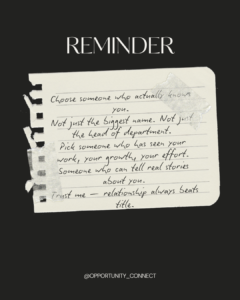 REMINDER
Choose someone who actually knows
you.
Not just the biggest name. Not just
the head of department.
Pick someone who has seen your
work, your growth, your effort.
Someone who can tell real stories
about you.
Trust me — relationship always beats
title.
@OPPORTUNITY_CONNECT